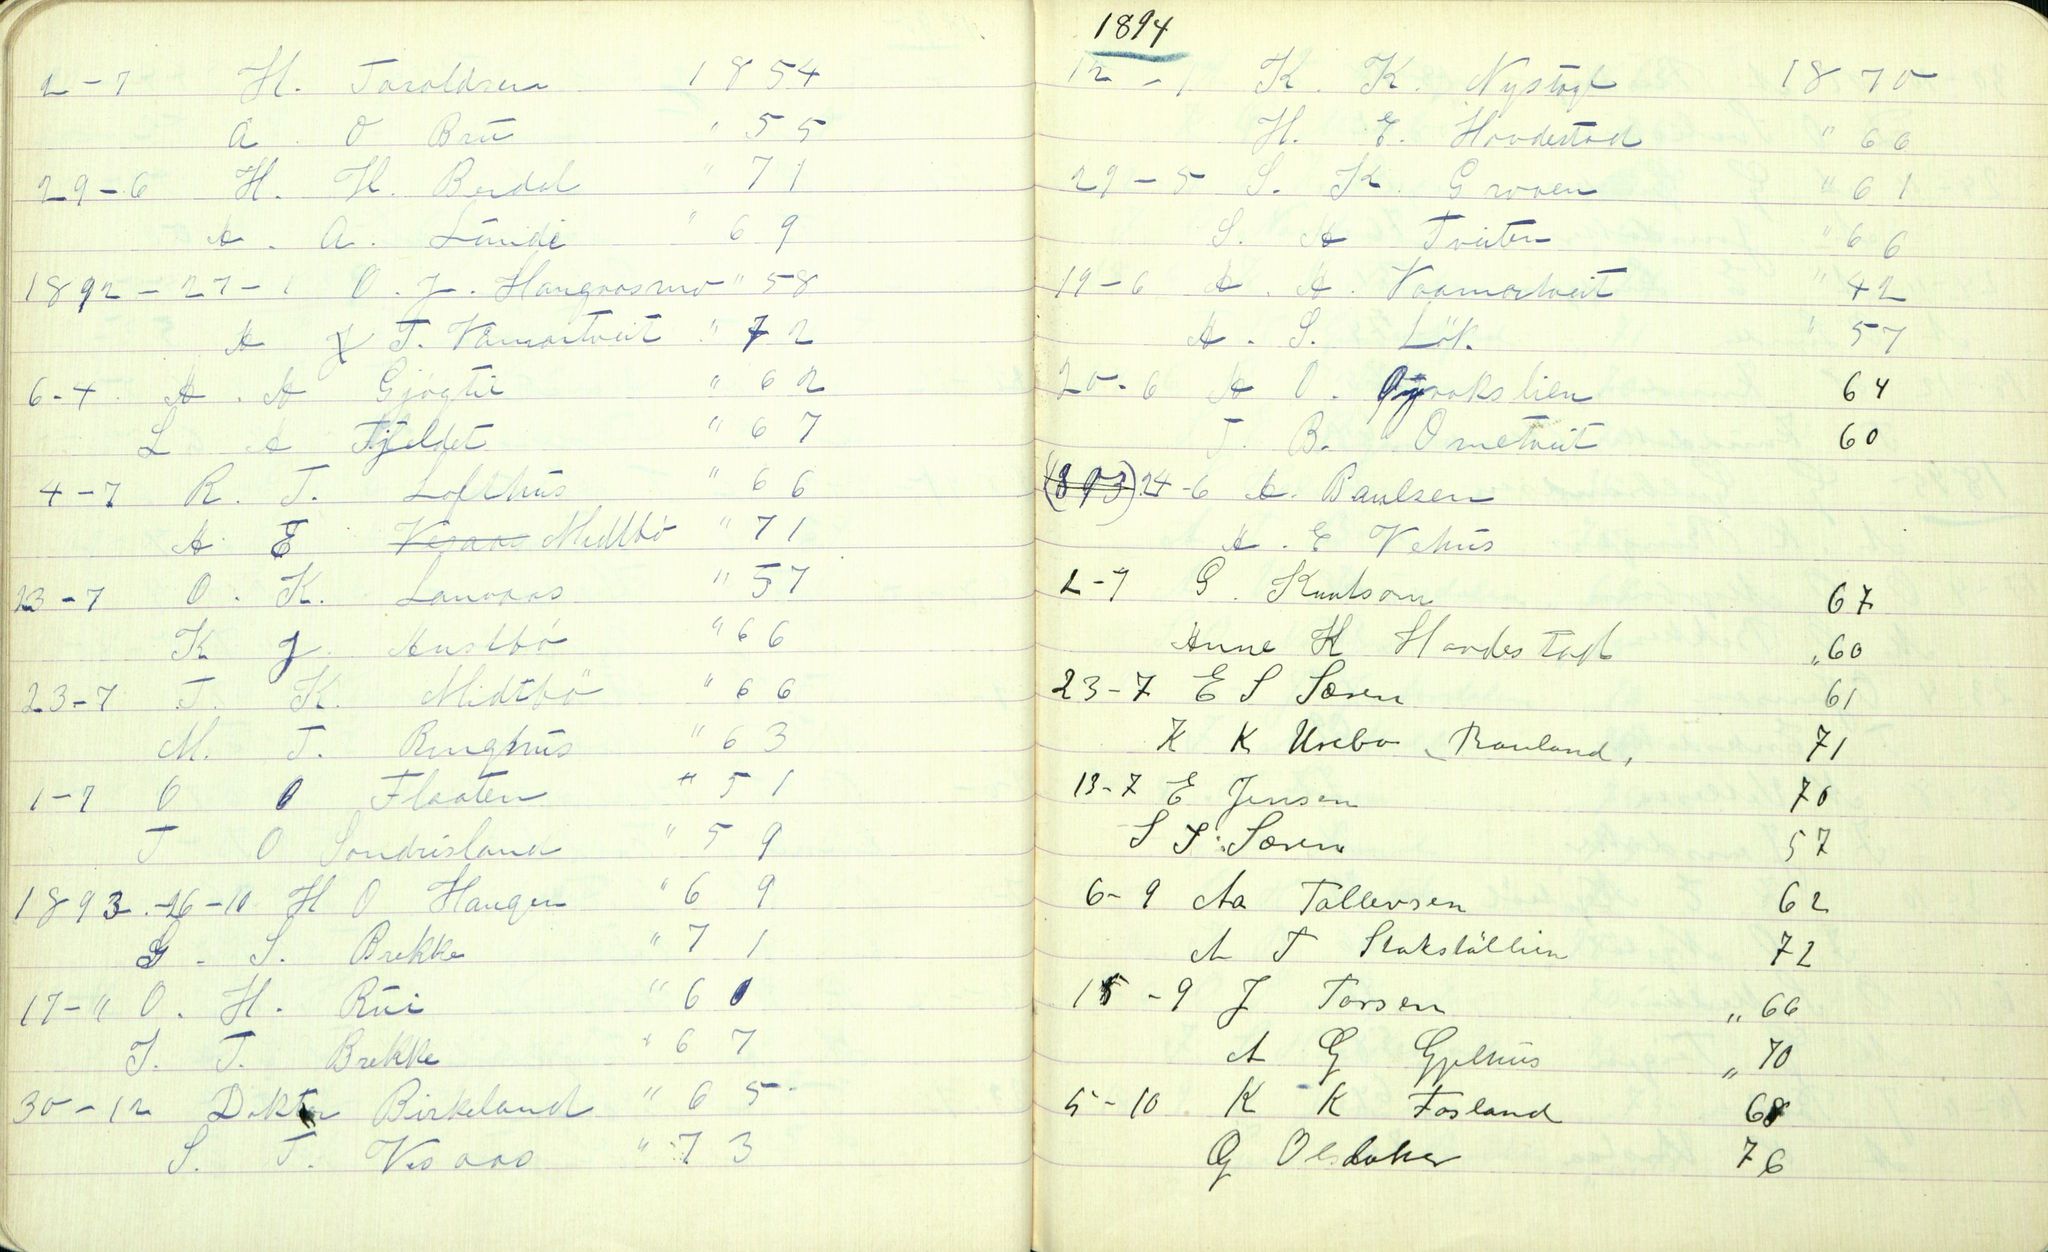 2-7 H. Taraldsen 1854
A. O Bru " 55
29-6 H. H. Berdal " 71
A. A. Lunde " 69
1892-27-1 O. J. Haugaasmo " 58
A T. Vamartveit " 72
6-4. A. A Gjøgtie " 62
L A Fjeldet " 67
4-7 R. T. Lofthus " 66
A E Vesaas Midtbø " 71
23-7 O. K. Lauvaas " 57
K J. Austbø " 66
23-7 T. K. Midtbø " 66
M. T. Ringhus " 63
1-7 O O Flaaten " 51
T O Sondrisland " 59
1893.-26-10 H O Haugen " 69
G. S. Brekke " 71
17-" O. H. Rui " 60
T. Brekke " 67
30-12 Doktor Birkeland " 65
S. T. Vesaas " 73
1894
12-1 K. K. Nystøgl 1870
H. E. Hovdestad " 66
29-5 S. K. Groven " 61
S. A Tveiten " 66
19-6 A. A. Vaamartveit " 42
A. S. Løk. " 57
20-6 A O. 64
T. B. Ormetveit 60
(1893).24-6 A. Paulsen
A. E Vehus
2-7 G. Knutson 67
Anne H Hovdestad " 60
23-7 E S Særen 61
K K Urebø Rauland, 71
13-7 E Jensen 70
S S. Særen 57
6-9 Aa Tallevsen 62
A T Stakstøllien 72
15-9 J Tarsen " 66
A G Gjelhus " 70
5-10 K K Fosland 68
G Olsbaker 76